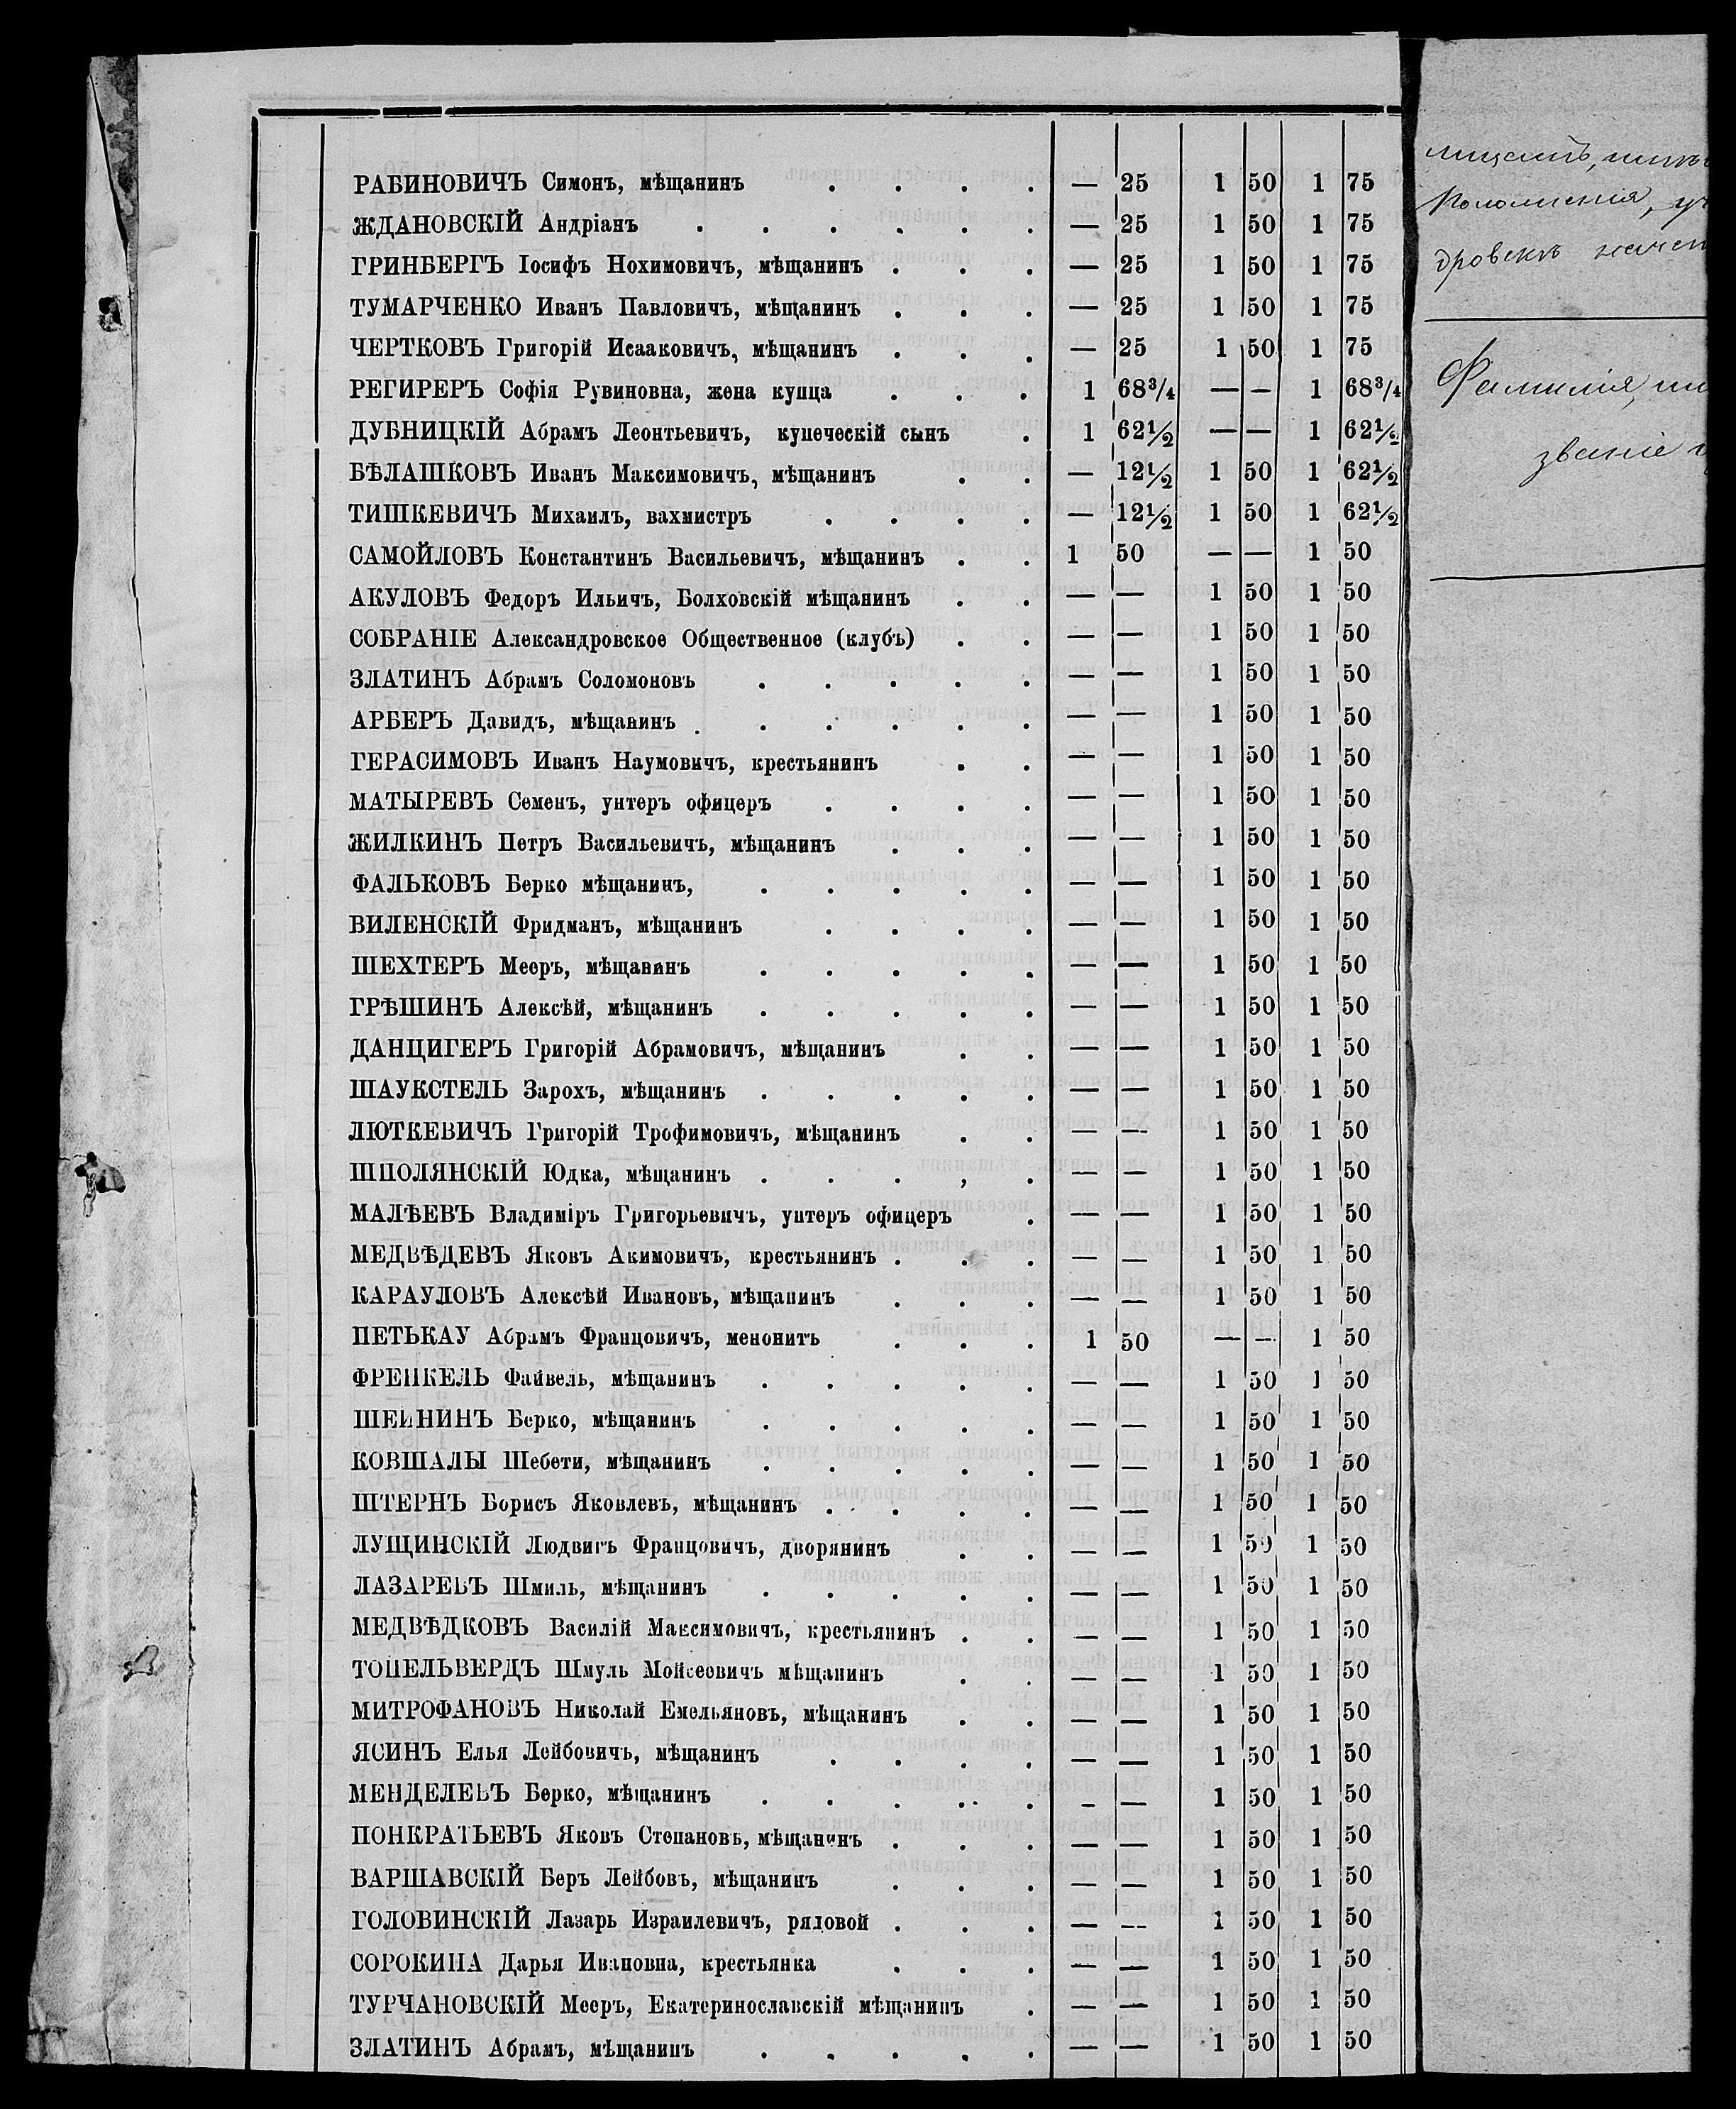 РАБИНОВИЧЪ Симонъ, мѣщанинъ . . . . — 25 1 50 1 75
ЖДАНОВСКІЙ Андріанъ . . . . . . — 25 1 50 1 75
ГРИНБЕРГЪ Іосифъ Нохимовичъ, мѣщанинъ . . . — 25 1 50 1 75
ТУМАРЧЕНКО Иванъ Павловичъ, мѣщанинъ . . . — 25 1 50 1 75
ЧЕРТКОВЪ Григорій Исааковичъ, мѣщанинъ . . . — 25 1 50 1 75
РЕГИРЕРЪ Софія Рувиновна, жена купца . . . 1 68¾ — — 1 68¾
ДУБНИЦКІЙ Абрамъ Леонтьевичъ, купеческій сынъ . 1 62½ — — 1 62½
БѢЛАШКОВЪ Иванъ Максимовичъ, мѣщанинъ . . — 12½ 1 50 1 62½
ТИШКЕВИЧЪ Михаилъ, вахмистръ . . . . — 12½ 1 50 1 62½
САМОЙЛОВЪ Константинъ Васильевичъ, мѣщанинъ . . 1 50 — — 1 50
АКУЛОВЪ Федоръ Ильичъ, Болховскій мѣщанинъ . . — — 1 50 1 50
СОБРАНІЕ Александровское Общественное (клубъ) . . — — 1 50 1 50
ЗЛАТИНЪ Абрамъ Соломоновъ . . . . . — — 1 50 1 50
АРБЕРЪ Давидъ, мѣщанинъ . . . . . . — — 1 50 1 50
ГЕРАСИМОВЪ Иванъ Наумовичъ, крестьянинъ . . — — 1 50 1 50
МАТЫРЕВЪ Семенъ, унтеръ офицеръ . . . . — — 1 50 1 50
ЖИЛКИНЪ Петръ Васильевичъ, мѣщанинъ . . . — — 1 50 1 50
ФАЛЬКОВЪ Берко мѣщанинъ, . . . . . — — 1 50 1 50
ВИЛЕНСКІЙ Фридманъ, мѣщанинъ . . . . — — 1 50 1 50
ШЕХТЕРЪ Мееръ, мѣщанинъ . . . . . — — 1 50 1 50
ГРѢШИНЪ Алексѣй, мѣщанинъ . . . . . — — 1 50 1 50
ДАНЦИГЕРЪ Григорій Абрамовичъ, мѣщанинъ . . — — 1 50 1 50
ШАУКСТЕЛЬ Зарохъ, мѣщанинъ . . . . . — — 1 50 1 50
ЛЮТКЕВИЧЪ Григорій Трофимовичъ, мѣщанинъ . . — — 1 50 1 50
ШПОЛЯНСКІЙ Юдка, мѣщанинъ . . . , . — — 1 50 1 50
МАЛѢЕВЪ Владиміръ Григорьевичъ, унтеръ офицеръ . — — 1 50 1 50
МЕДВѢДЕВЪ Яковъ Акимовичъ, крестьянинъ . . . — — 1 50 1 50
КАРАУЛОВЪ Алексѣй Ивановъ, мѣщанинъ . . . — — 1 50 1 50
ПЕТЬКАУ Абрамъ Францовичъ, менонитъ . . . 1 50 — — 1 50
ФРЕНКЕЛЬ Файвель, мѣщанинъ . . . . . — — 1 50 1 50
ШЕЙНИНЪ Берко, мѣщанинъ . . . . . — — 1 50 1 50
КОВШАЛЫ Шебети, мѣщанинъ . . . . . — — 1 50 1 50
ШТЕРНЪ Борисъ Яковлевъ, мѣщанинъ . . . . — — 1 50 1 50
ЛУЩИНСКІЙ Людвигъ Францовичъ, дворянинъ . . — — 1 50 1 50
ЛАЗАРЕВЪ Шмиль, мѣщанинъ . . . . . — — 1 50 1 50
МЕДВѢДКОВЪ Василій Максимовичъ, крестьянинъ . . — — 1 50 1 50
ТОПЕЛЬВЕРДЪ Шмуль Мойсеевичъ мѣщанинъ . . — — 1 50 1 50
МИТРОФАНОВЪ Николай Емельяновъ, мѣщанинъ . . — — 1 50 1 50
ЯСИНЪ Елья Лейбовичъ, мѣщанинъ . . . . — — 1 50 1 50
МЕНДЕЛЕВЪ Берко, мѣщанинъ . . . . . — — 1 50 1 50
ПОНКРАТЬЕВЪ Яковъ Степановъ, мѣщанинъ . . . — — 1 50 1 50
ВАРШАВСКІЙ Беръ Лейбовъ, мѣщанинъ . . . — — 1 50 1 50
ГОЛОВИНСКІЙ Лазарь Израилевичъ, рядовой . . . — — 1 50 1 50
СОРОКИНА Дарья Ивановна, крестьянка . . . — — 1 50 1 50
ТУРЧАНОВСКІЙ Мееръ, Екатеринославскій мѣщанинъ . — — 1 50 1 50
ЗЛАТИНЪ Абрамъ, мѣщанинъ . . . . . — — 1 50 1 50
Фамилія, им
званіе